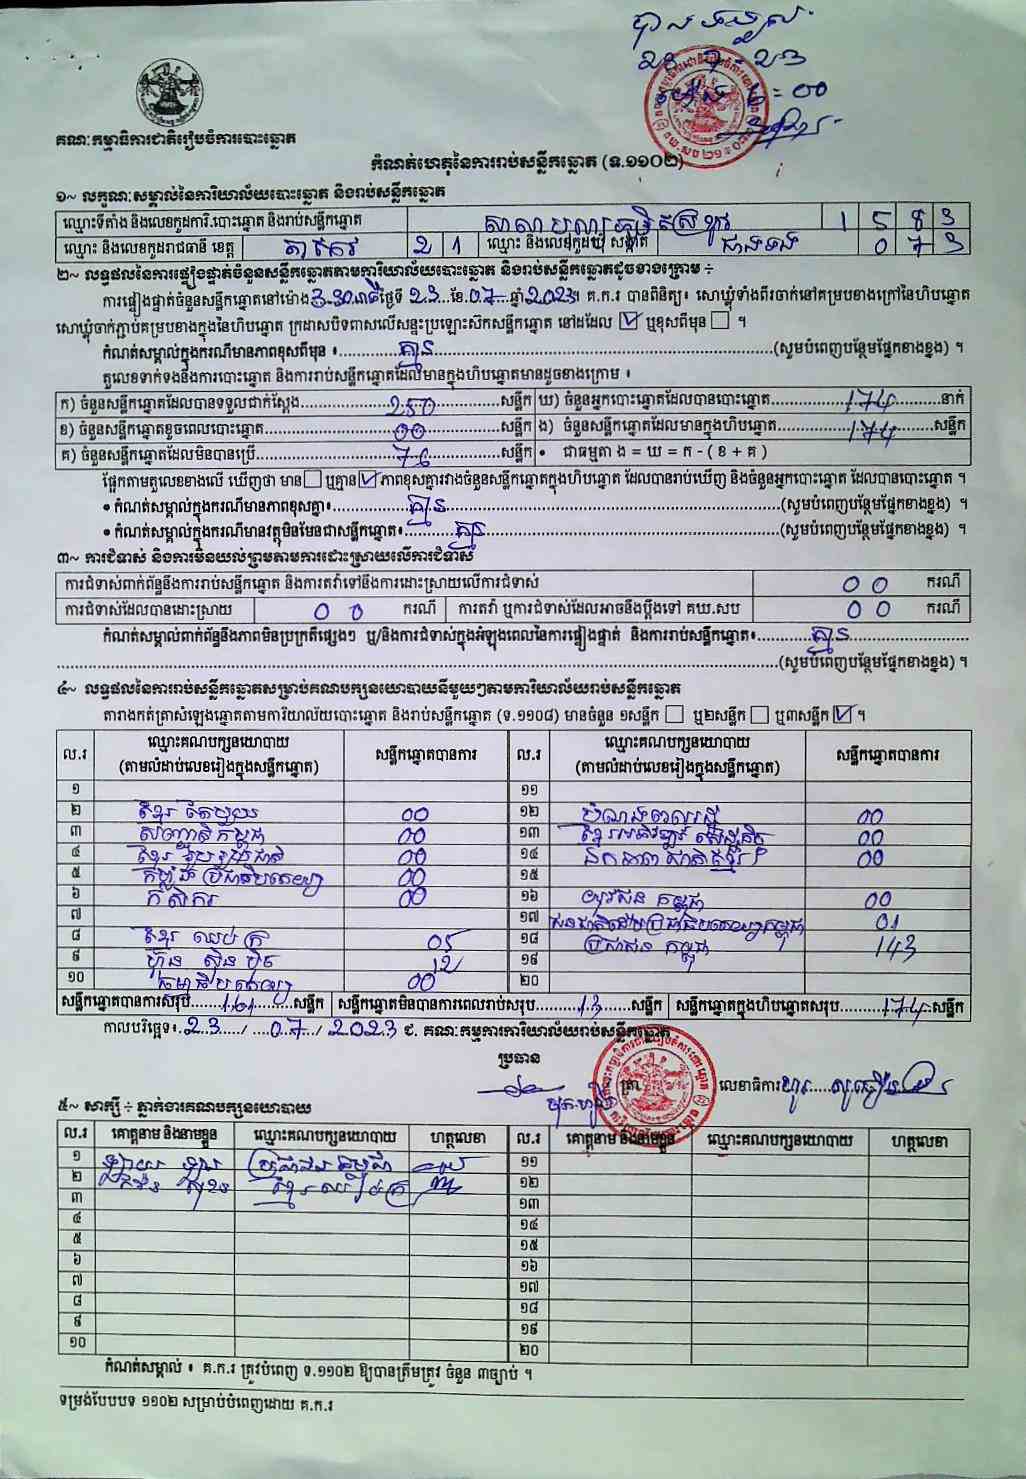 បានទទួល
២៣ ៧ ២៣
ម៉ោង ៦ : ០០
គណៈកម្មាធិការជាតិរៀបចំការបោះឆ្នោត
កំណត់ហេតុនៃការរាប់សន្លឹកឆ្នោត (ទ.១១០២)
១~ លក្ខណៈសម្គាល់នៃការិយាល័យបោះឆ្នោត និងរាប់សន្លឹកឆ្នោត
ឈ្មោះទីតាំង និងលេខកូដការិ.បោះឆ្នោត និងរាប់សន្លឹកឆ្នោត 1 5 8 3
ឈ្មោះ និងលេខកូដរាជធានី ខេត្ត តាកែវ 2 1 ឈ្មោះ និងលេខកូដឃុំ សង្កាត់ ជាងទង 0 7 3
២~ លទ្ធផលនៃការផ្ទៀងផ្ទាត់ចំនួនសន្លឹកឆ្នោតតាមការិយាល័យបោះឆ្នោត និងរាប់សន្លឹកឆ្នោតដូចខាងក្រោម ÷
ការផ្ទៀងផ្ទាត់ចំនួនសន្លឹកឆ្នោតនៅម៉ោង 3:30 នាទី ថ្ងៃទី 23 ខែ 07 ឆ្នាំ 2023 ។ គ.ក.រ បានពិនិត្យ៖ សោឃ្លុំទាំងពីរចាក់នៅគម្របខាងក្រៅនៃហិបឆ្នោត
សោឃ្លុំចាក់ភ្ជាប់គម្របខាងក្នុងនៃហិបឆ្នោត ក្រដាសបិទពាសលើសន្ទះប្រឡោះស៊កសន្លឹកឆ្នោត នៅដដែល ☑ ឬខុសពីមុន ☐ ។
កំណត់សម្គាល់ក្នុងករណីមានភាពខុសពីមុន ៖ គ្មាន (សូមបំពេញបន្ថែមផ្នែកខាងខ្នង) ។
តួលេខទាក់ទងនឹងការបោះឆ្នោត និងការរាប់សន្លឹកឆ្នោតដែលមានក្នុងហិបឆ្នោតមានដូចខាងក្រោម ៖
ក) ចំនួនសន្លឹកឆ្នោតដែលបានទទួលជាក់ស្តែង 250 សន្លឹក ឃ) ចំនួនអ្នកបោះឆ្នោតដែលបានបោះឆ្នោត 174 នាក់
ខ) ចំនួនសន្លឹកឆ្នោតខូចពេលបោះឆ្នោត 00 សន្លឹក ង) ចំនួនសន្លឹកឆ្នោតដែលមានក្នុងហិបឆ្នោត 174 សន្លឹក
គ) ចំនួនសន្លឹកឆ្នោតដែលមិនបានប្រើ 76 សន្លឹក • ជាធម្មតា ង = ឃ = ក - ( ខ + គ )
ផ្អែកតាមតួលេខខាងលើ ឃើញថា មាន ☐ ឬគ្មាន ☑ ភាពខុសគ្នារវាងចំនួនសន្លឹកឆ្នោតក្នុងហិបឆ្នោត ដែលបានរាប់ឃើញ និងចំនួនអ្នកបោះឆ្នោត ដែលបានបោះឆ្នោត ។
• កំណត់សម្គាល់ក្នុងករណីមានភាពខុសគ្នា៖ គ្មាន (សូមបំពេញបន្ថែមផ្នែកខាងខ្នង) ។
• កំណត់សម្គាល់ក្នុងករណីមានវត្ថុមិនមែនជាសន្លឹកឆ្នោត៖ គ្មាន (សូមបំពេញបន្ថែមផ្នែកខាងខ្នង) ។
៣~ ការជំទាស់ និងការមិនយល់ព្រមតាមការដោះស្រាយលើការជំទាស់
ការជំទាស់ពាក់ព័ន្ធនឹងការរាប់សន្លឹកឆ្នោត និងការតវ៉ាទៅនឹងការដោះស្រាយលើការជំទាស់ 0 0 ករណី
ការជំទាស់ដែលបានដោះស្រាយ 0 0 ករណី ការតវ៉ា ឬការជំទាស់ដែលអាចនឹងប្តឹងទៅ គឃ.សប 0 0 ករណី
កំណត់សម្គាល់ពាក់ព័ន្ធនឹងភាពមិនប្រក្រតីផ្សេងៗ ឬ/និងការជំទាស់ក្នុងអំឡុងពេលនៃការផ្ទៀងផ្ទាត់ និងការរាប់សន្លឹកឆ្នោត៖ គ្មាន
(សូមបំពេញបន្ថែមផ្នែកខាងខ្នង) ។
៤~ លទ្ធផលនៃការរាប់សន្លឹកឆ្នោតសម្រាប់គណបក្សនយោបាយនីមួយៗតាមការិយាល័យរាប់សន្លឹកឆ្នោត
តារាងកត់ត្រាសំឡេងឆ្នោតតាមការិយាល័យបោះឆ្នោត និងរាប់សន្លឹកឆ្នោត (ទ.១១០៨) មានចំនួន ១សន្លឹក ☐ ឬ២សន្លឹក ☐ ឬ៣សន្លឹក ☑ ។
ល.រ ឈ្មោះគណបក្សនយោបាយ (តាមលំដាប់លេខរៀងក្នុងសន្លឹកឆ្នោត) សន្លឹកឆ្នោតបានការ ល.រ ឈ្មោះគណបក្សនយោបាយ (តាមលំដាប់លេខរៀងក្នុងសន្លឹកឆ្នោត) សន្លឹកឆ្នោតបានការ
១ ១១
២ ខ្មែរតែមួយ 00 ១២ 00
៣ សញ្ជាតិកម្ពុជា 00 ១៣ ខ្មែរអភិវឌ្ឍន៍សេដ្ឋកិច្ច 00
៤ ខ្មែររួបរួមជាតិ 00 ១៤ ឯកភាពជាតិខ្មែរ 00
៥ កម្លាំងប្រជាធិបតេយ្យ 00 ១៥
៦ កសិករ 00 ១៦ យុវជនកម្ពុជា 00
៧ ១៧ ជនជាតិដើមប្រជាធិបតេយ្យកម្ពុជា 01
៨ ខ្មែរឈប់ក្រ 05 ១៨ ប្រជាជនកម្ពុជា 143
៩ ហ៊្វុនស៊ិនប៉ិច 12 ១៩
១០ ធម្មាធិបតេយ្យ 00 ២០
សន្លឹកឆ្នោតបានការសរុប 161 សន្លឹក សន្លឹកឆ្នោតមិនបានការពេលរាប់សរុប 13 សន្លឹក សន្លឹកឆ្នោតក្នុងហិបឆ្នោតសរុប 174 សន្លឹក
កាលបរិច្ឆេទ៖ 23 / 07 / 2023 ជ. គណៈកម្មការការិយាល័យរាប់សន្លឹកឆ្នោត
ប្រធាន
ត្រា លេខាធិការ
៥~ សាក្សី ÷ ភ្នាក់ងារគណបក្សនយោបាយ
ល.រ គោត្តនាម និងនាមខ្លួន ឈ្មោះគណបក្សនយោបាយ ហត្ថលេខា ល.រ គោត្តនាម និងនាមខ្លួន ឈ្មោះគណបក្សនយោបាយ ហត្ថលេខា
១ ប្រជាជនកម្ពុជា ១១
២ ខ្មែរឈប់ក្រ ១២
៣ ១៣
៤ ១៤
៥ ១៥
៦ ១៦
៧ ១៧
៨ ១៨
៩ ១៩
១០ ២០
កំណត់សម្គាល់ ៖ គ.ក.រ ត្រូវបំពេញ ទ.១១០២ ឱ្យបានត្រឹមត្រូវ ចំនួន ៣ច្បាប់ ។
ទម្រង់បែបបទ ១១០២ សម្រាប់បំពេញដោយ គ.ក.រ